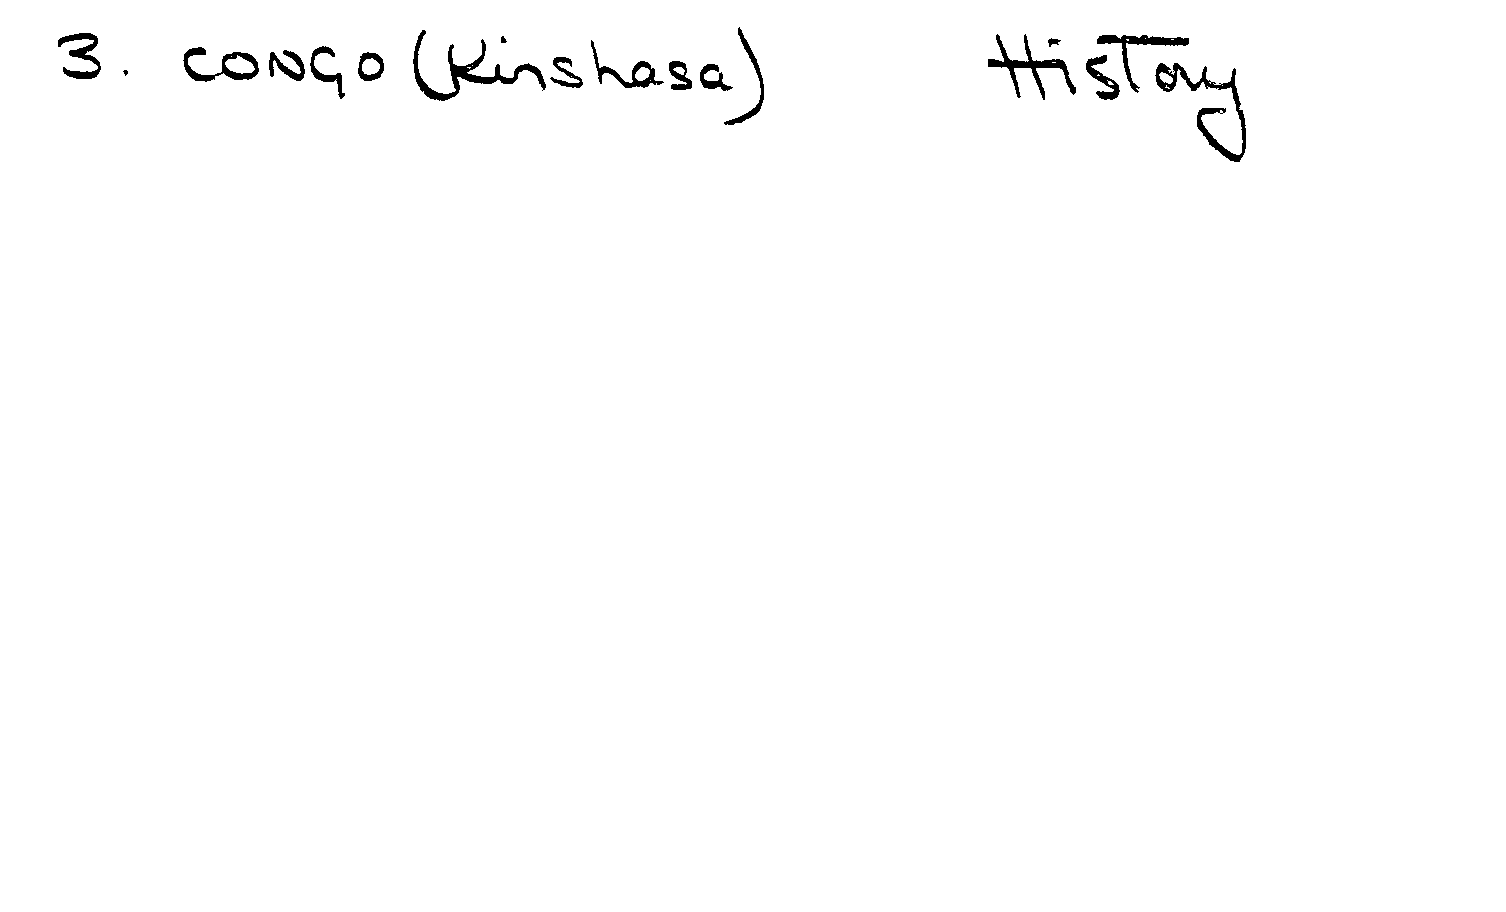 3. CONGO (Kinshasa) History